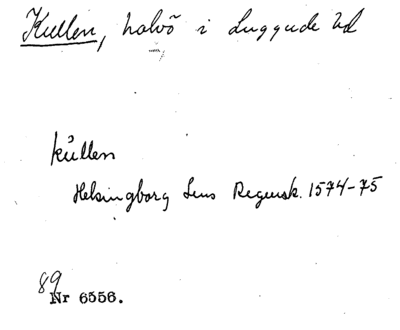 Kullen, halvö i Luggude hd
kullen
Helsingborg Lens Regensk. 1574-75
89
Nr 6556.